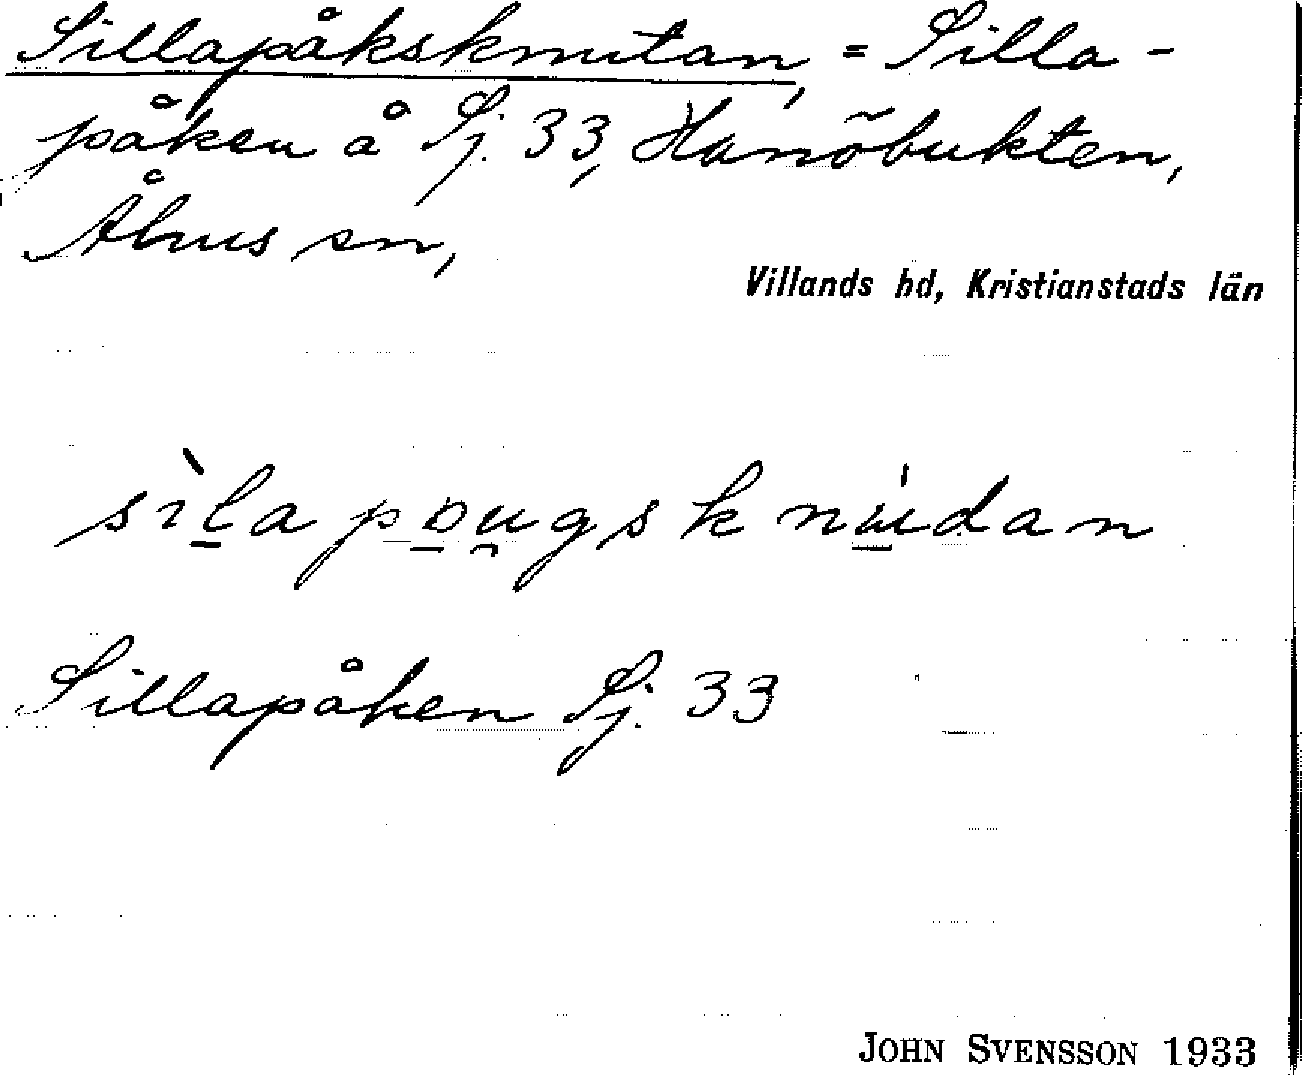 Sillapåksknutan, = Silla-
påken å Sj. 33, Hanöbukten,
Åhus sn,
Villands hd, Kristianstads län
sìlapougsknúdan
Sillapåken Sj. 33
JOHN SVENSSON 1933